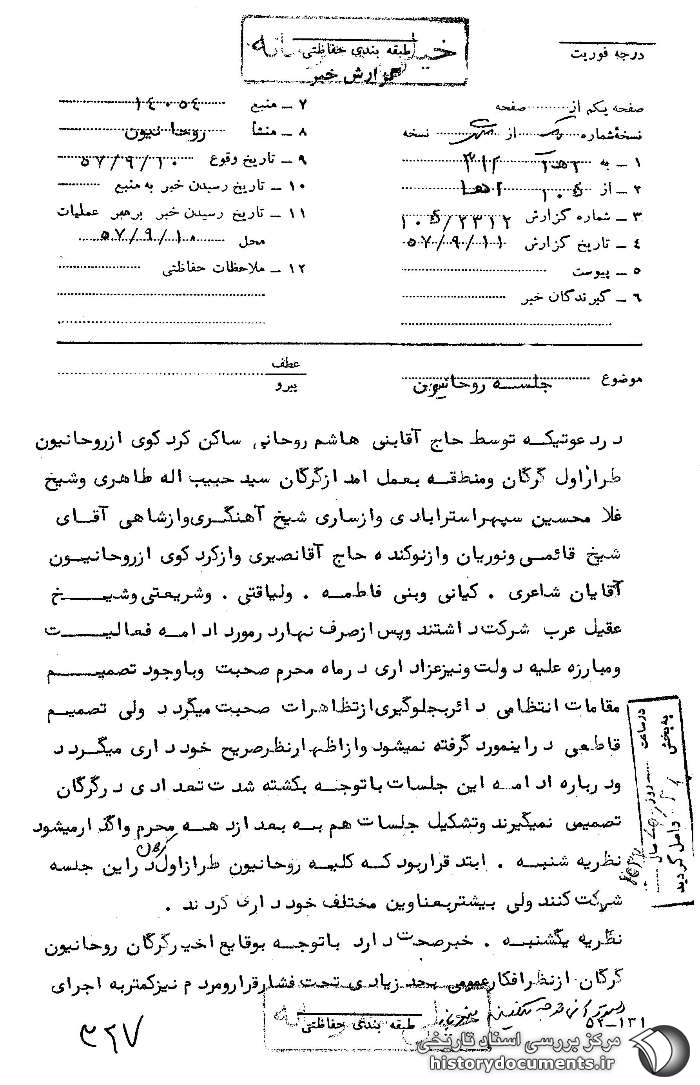 درجه فوریت
طبقه بندی حفاظتی
گزارش خبر
صفحه یکم از صفحه
نسخهٔ شماره از نسخه
۱ – به ۳۱۲
۲ – از
۳ – شماره گزارش
۴ – تاریخ گزارش ۵۷/۹/۱۱
۵ – پیوست
۶ – گیرندگان خبر
۷ – منبع ۱۴۰۵۴
۸ – منشأ روحانیون
۹ – تاریخ وقوع ۵۷/۹/۱۰
۱۰ – تاریخ رسیدن خبر به منبع
۱۱ – تاریخ رسیدن خبر برهبر عملیات
محل ۵۷/۹/۱۰
۱۲ – ملاحظات حفاظتی
موضوع جلسه روحانیون
عطف
پیرو
در دعوتیکه توسط حاج آقابنی هاشم روحانی ساکن کردکوی از روحانیون
طراز اول گرگان ومنطقه بعمل امد ازگرگان سید حبیب اله طاهری وشیخ
غلامحسین سپهراسترابادی وازساری شیخ آهنگری وازشاهی آقای
شیخ قائمی ونوریان وازنوکنده حاج آقانصیری وازکردکوی ازروحانیون
آقایان شاعری . کیانی وبنی فاطمه . ولیاقتی . وشریعتی وشیخ
عقیل عرب شرکت داشتند وپس ازصرف نهار درمورد ادامه فعالیت
ومبارزه علیه دولت ونیزعزاداری درماه محرم صحبت وباوجود تصمیم
مقامات انتظامی دائربجلوگیری ازتظاهرات صحبت میگردد ولی تصمیم
قاطعی دراینمورد گرفته نمیشود وازاظهارنظرصریح خودداری میگردد
ودرباره ادامه این جلسات باتوجه بکشته شدن تعدادی درگرگان
تصمیمی نمیگیرند وتشکیل جلسات هم به بعد ازدهه محرم واگذارمیشود
نظریه شنبه . ابتد قراربود که کلیه روحانیون طرازاول گرگان دراین جلسه
شرکت کنند ولی بیشتربعناوین مختلف خودداری کردند .
نظریه یکشنبه . خبرصحت دارد باتوجه بوقایع اخیرگرگان روحانیون
گرگان ازنظرافکارعمومی بحد زیادی تحت فشارقرارومردم نیزکمتربه اجرای
طبقه بندی حفاظتی
۵۲-۱۳۱
۳۲۷
به بخش
درساعت روز سال
واصل گردید
مرکز بررسی اسناد تاریخی
historydocuments.ir